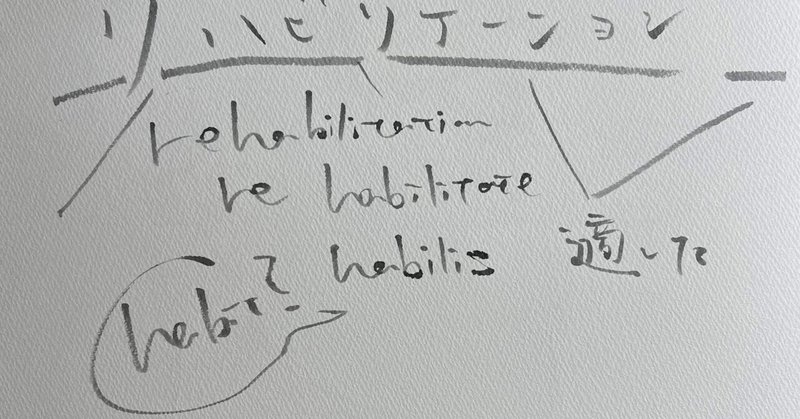 リハビリテーション
rehabilitation
re habilitate
habilis 適した
habit?